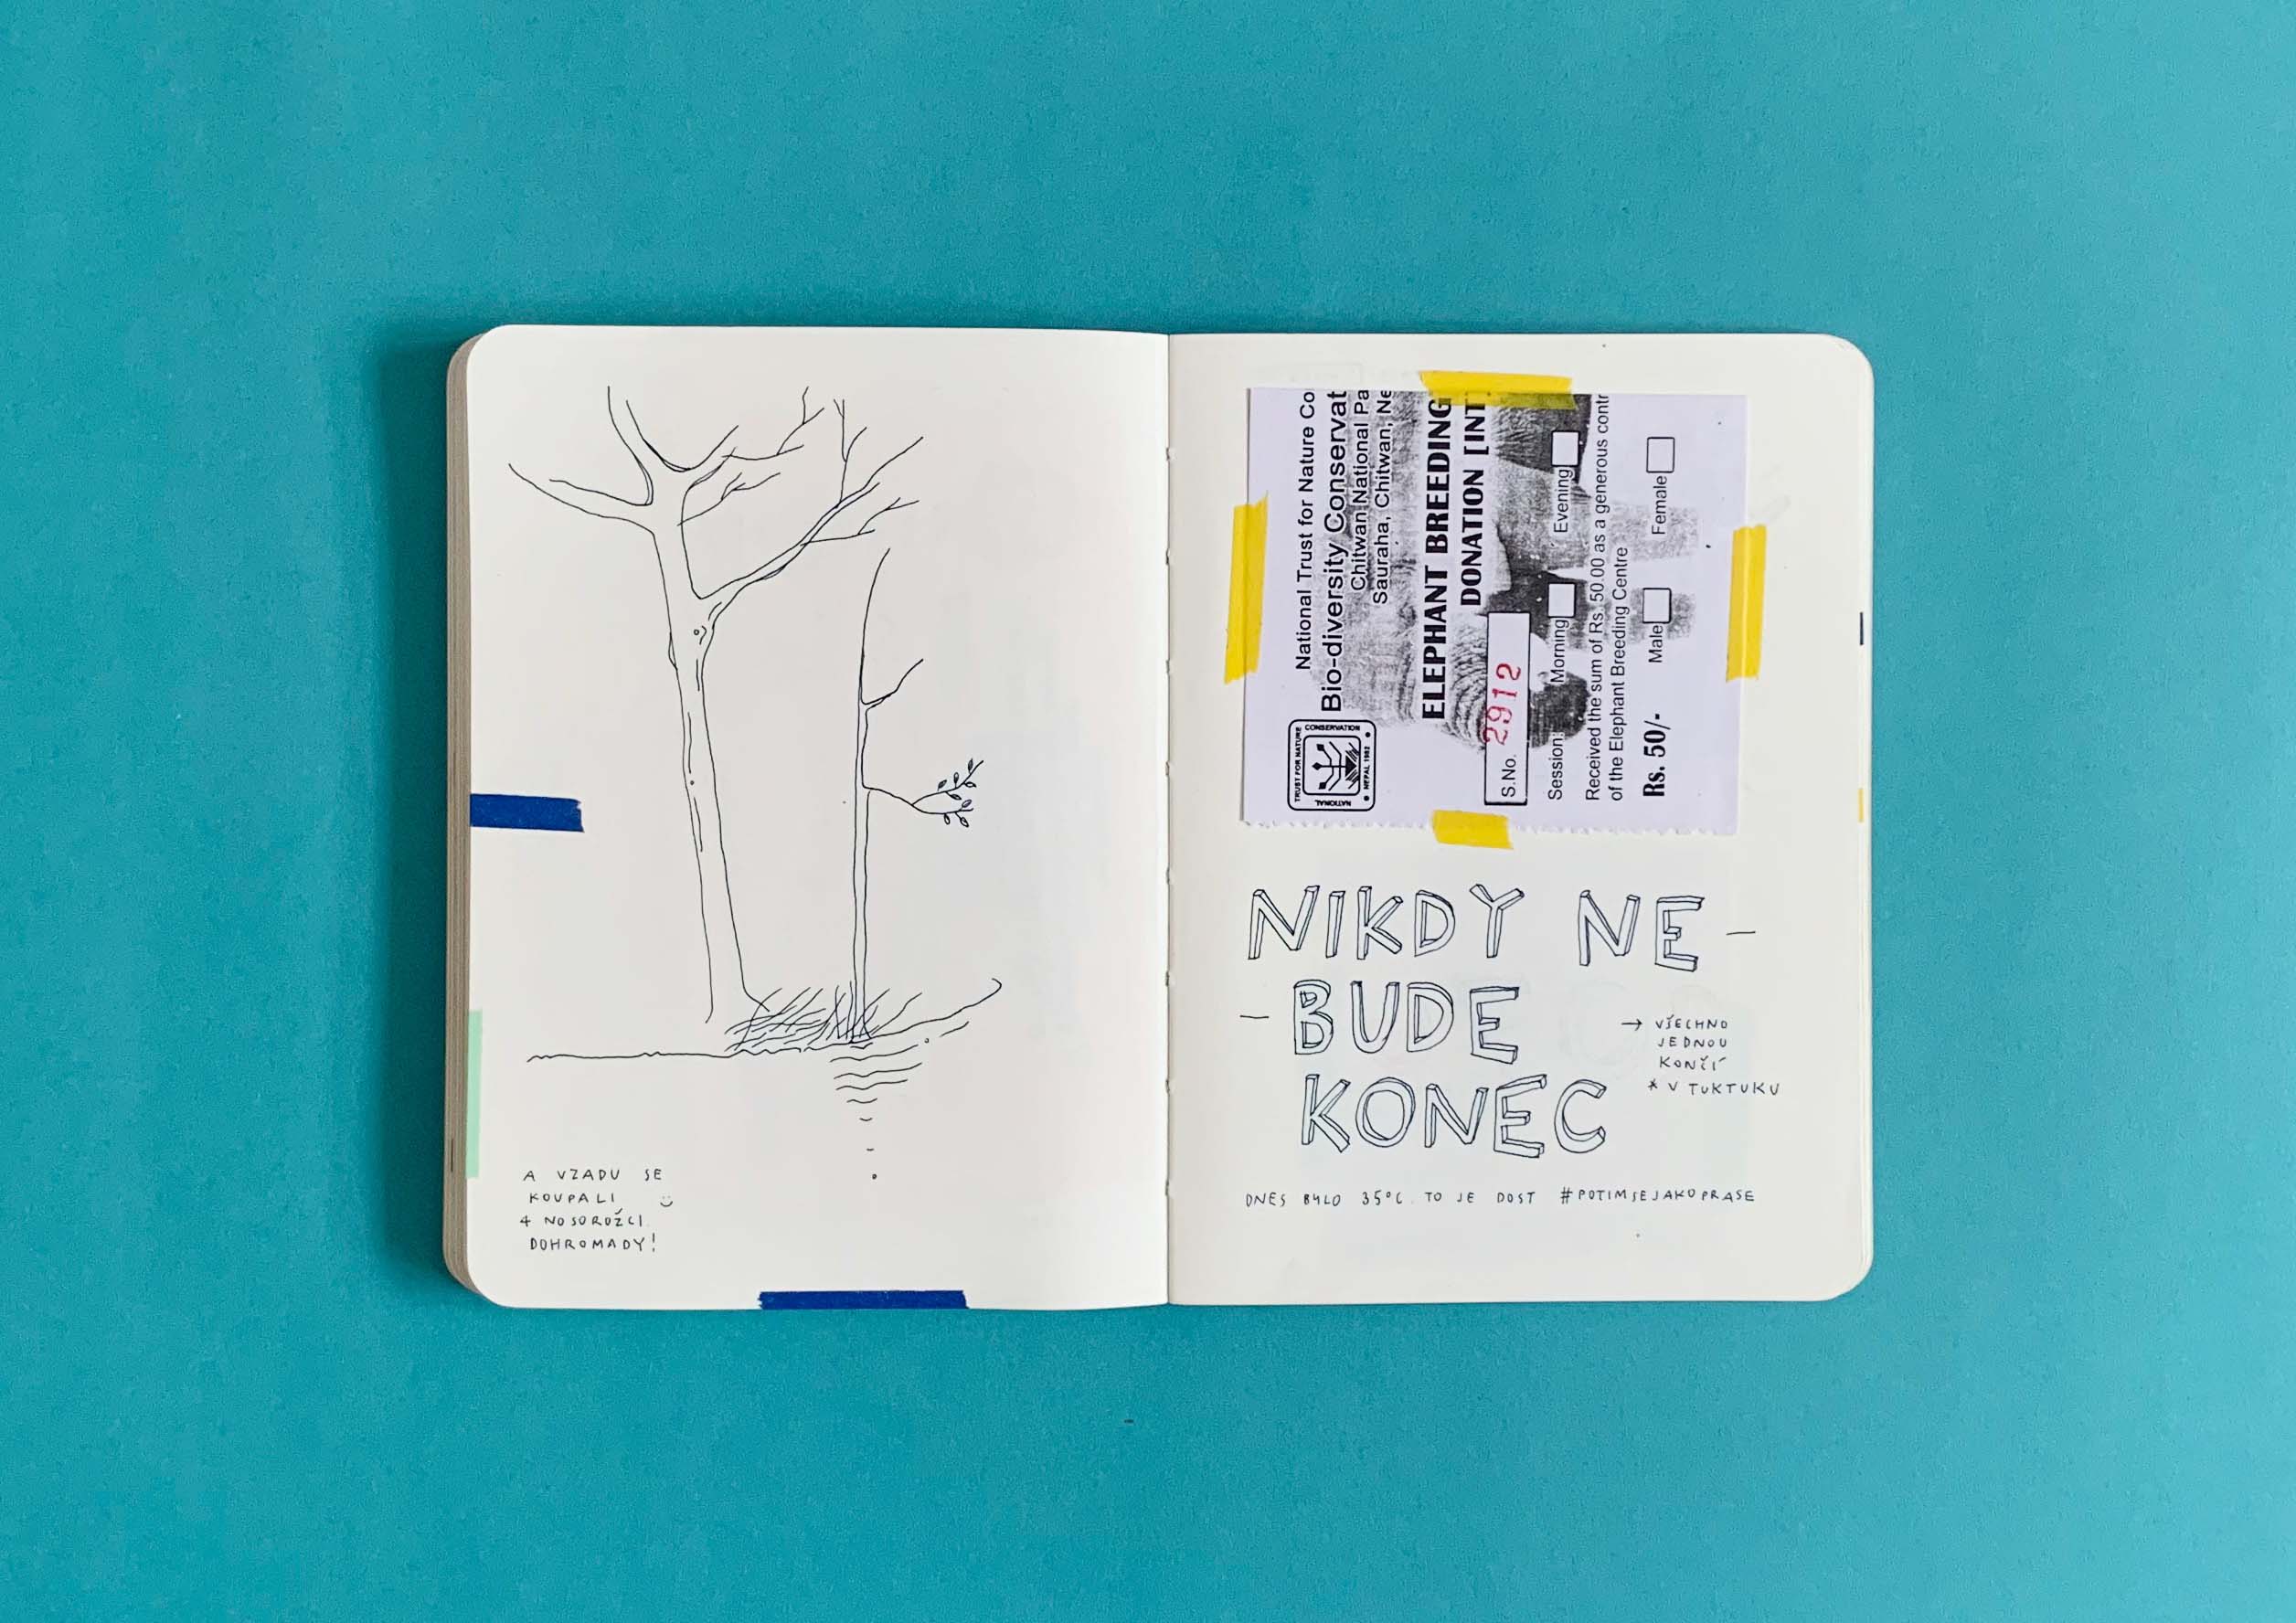 A VZADU SE
KOUPALI :)
4 NOSOROŽCI
DOHROMADY!
National Trust for Nature Co
Bio-diversity Conservat
Chitwan National Pa
Sauraha, Chitwan, Ne
ELEPHANT BREEDING
DONATION [INT
S.No. 2912
Session: Morning Evening
Received the sum of Rs. 50.00 as a generous contr
of the Elephant Breeding Centre
Rs. 50/- Male Female
NATIONAL TRUST FOR NATURE CONSERVATION
NEPAL 1982
NIKDY NE-
-BUDE
KONEC
→ VŠECHNO
JEDNOU
KONČÍ
* V TUKTUKU
DNES BYLO 35°C. TO JE DOST #POTIMSEJAKOPRASE